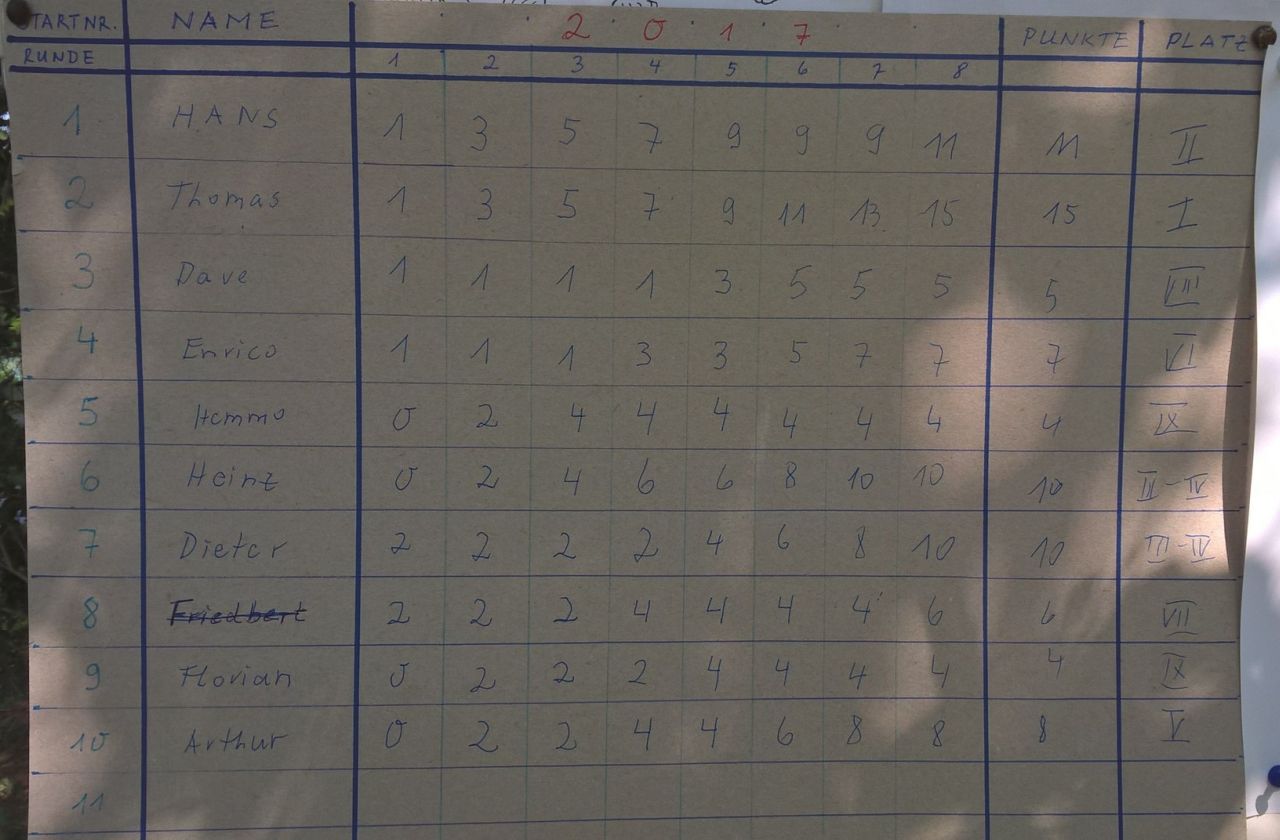 STARTNR. NAME 2 0 1 7 PUNKTE PLATZ
RUNDE 1 2 3 4 5 6 7 8
1 HANS 1 3 5 7 9 9 9 11 11 II
2 Thomas 1 3 5 7 9 11 13 15 15 I
3 Dave 1 1 1 1 3 5 5 5 5 VIII
4 Enrico 1 1 1 3 3 5 7 7 7 VI
5 Hemmo 0 2 4 4 4 4 4 4 4 IX
6 Heinz 0 2 4 6 6 8 10 10 10 III-IV
7 Dieter 2 2 2 2 4 6 8 10 10 III-IV
8 Friedbert 2 2 2 4 4 4 4 6 6 VII
9 Florian 0 2 2 2 4 4 4 4 4 IX
10 Arthur 0 2 2 4 4 6 8 8 8 V
11